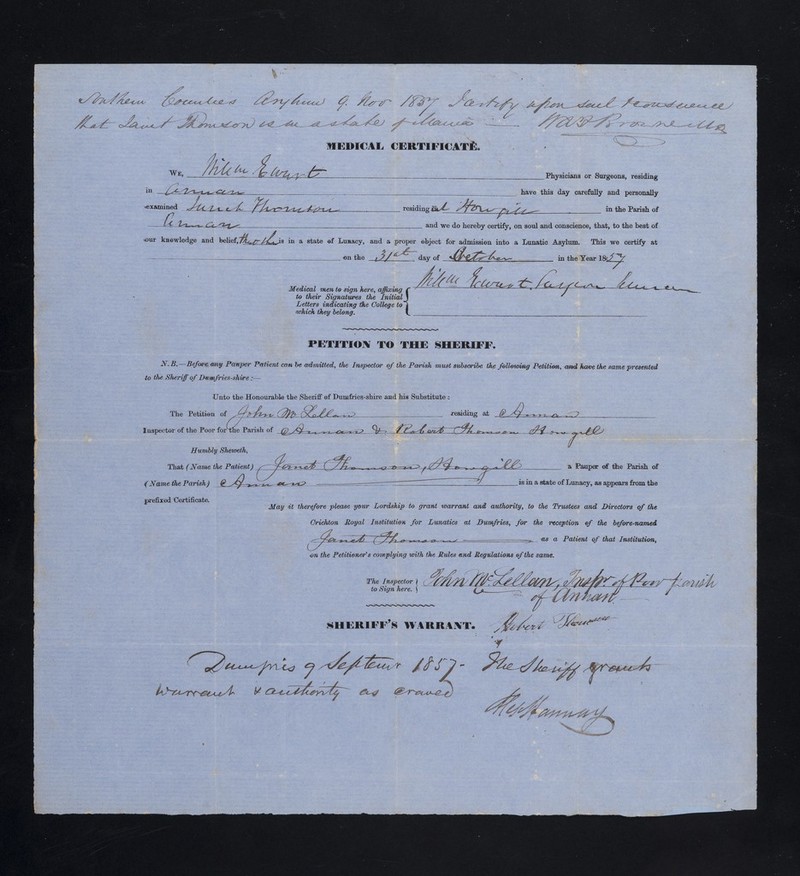 Southern Counties Asylum 9. Nov 1857 I certify upon soul & conscience
that Janet Thomson is in a state of Mania — W.A.F. Browne M.D.
MEDICAL CERTIFICATE.
We, Willm Ewart Physicians or Surgeons, residing
in Annan have this day carefully and personally
examined Janet Thomson residing at Howgill in the Parish of
Annan and we do hereby certify, on soul and conscience, that, to the best of
our knowledge and belief, is in a state of Lunacy, and a proper object for admission into a Lunatic Asylum. This we certify at
on the 31st day of October in the Year 1857
Medical men to sign here, affixing
to their Signatures the Initial
Letters indicating the College to
which they belong.
Willm Ewart, Surgeon Annan
PETITION TO THE SHERIFF.
N.B.—Before any Pauper Patient can be admitted, the Inspector of the Parish must subscribe the following Petition, and have the same presented
to the Sheriff of Dumfries-shire:—
Unto the Honourable the Sheriff of Dumfries-shire and his Substitute:
The Petition of John McLellan residing at Annan
Inspector of the Poor for the Parish of Annan & Robert Thomson Howgill
Humbly Sheweth,
That (Name the Patient) Janet Thomson, Howgill a Pauper of the Parish of
(Name the Parish) Annan is in a state of Lunacy, as appears from the
prefixed Certificate.
May it therefore please your Lordship to grant warrant and authority, to the Trustees and Directors of the
Crichton Royal Institution for Lunatics at Dumfries, for the reception of the before-named
Janet Thomson as a Patient of that Institution,
on the Petitioner's complying with the Rules and Regulations of the same.
The Inspector
to Sign here.
John McLellan, Inspr of Poor Parish
of Annan.
Robert Thomson
SHERIFF'S WARRANT.
Dumfries 9 Septemr 1857— The Sheriff grants
warrant & authority as craved
Hannay